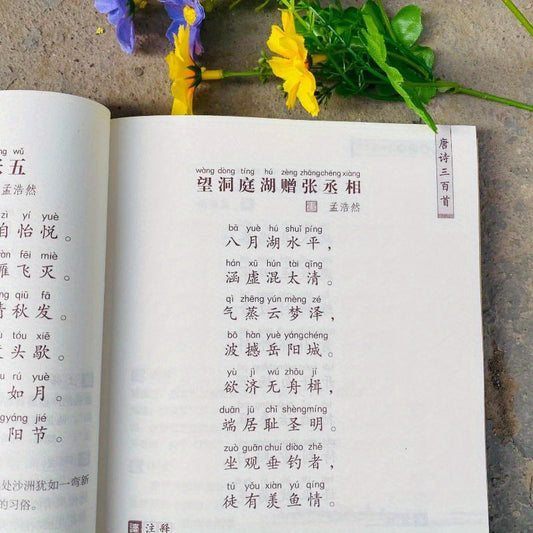 wǔ
五
孟浩然
zì yí yuè
自怡悦。
yàn fēi miè
雁飞灭。
qīng qiū fā
清秋发。
dù tóu xiē
头歇。
rú yuè
如月。
chóng yáng jié
阳节。
处沙洲犹如一弯新
的习俗。
唐诗三百首
wàng dòng tíng hú zèng zhāng chéng xiàng
望洞庭湖赠张丞相
唐 孟浩然
bā yuè hú shuǐ píng
八月湖水平，
hán xū hún tài qīng
涵虚混太清。
qì zhēng yún mèng zé
气蒸云梦泽，
bō hàn yuè yáng chéng
波撼岳阳城。
yù jì wú zhōu jí
欲济无舟楫，
duān jū chǐ shèng míng
端居耻圣明。
zuò guān chuí diào zhě
坐观垂钓者，
tú yǒu xiàn yú qíng
徒有羡鱼情。
注释